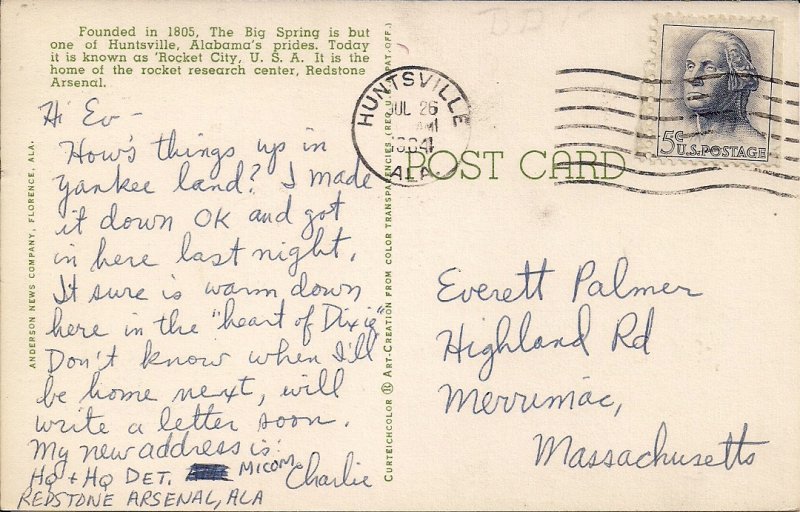 Founded in 1805, The Big Spring is but
one of Huntsville, Alabama's prides. Today
it is known as 'Rocket City, U. S. A. It is the
home of the rocket research center, Redstone
Arsenal.
Hi Ev -
How's things up in
Yankee land? I made
it down OK and got
in here last night.
It sure is warm down
here in the "heart of Dixie"
Don't know when I'll
be home next, will
write a letter soon.
My new address is:
HQ + HQ DET. MICOM
Charlie
REDSTONE ARSENAL, ALA
ANDERSON NEWS COMPANY, FLORENCE, ALA.
CURTEICHCOLOR ® ART-CREATION FROM COLOR TRANSPARENCIES (REG. U.S. PAT. OFF.)
HUNTSVILLE
JUL 26
1964
ALA.
5¢
U.S. POSTAGE
POST CARD
Everett Palmer
Highland Rd
Merrimac,
Massachusetts